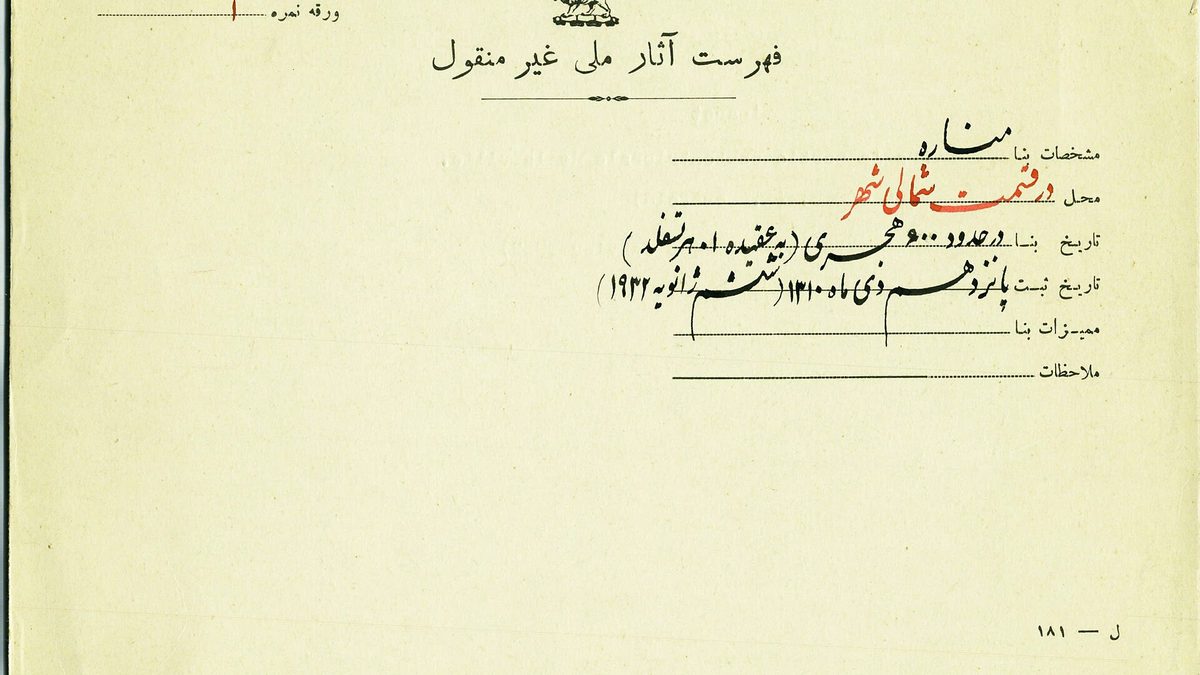 ورقه نمره ۱
فهرست آثار ملی غیر منقول
مشخصات بنا مناره
محل در قسمت شمالی شهر
تاریخ بنا در حدود ۶۰۰ هجری (به عقیده ا. هرتسفلد)
تاریخ ثبت پانزدهم دی ماه ۱۳۱۰ (ششم ژانویه ۱۹۳۲)
ممیزات بنا
ملاحظات
ل — ۱۸۱